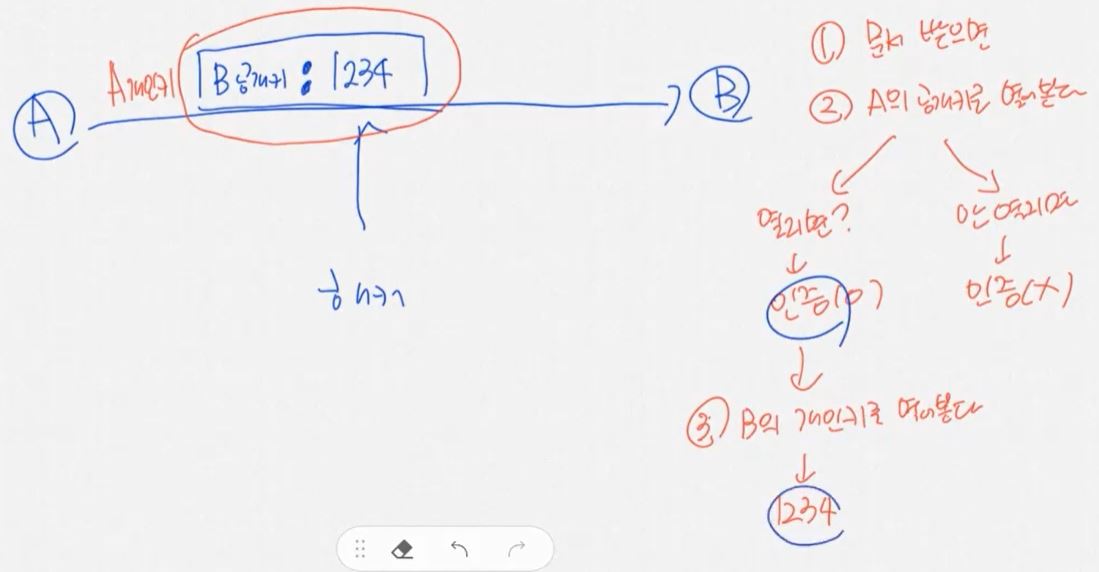 A
A개인키
B공개키 : 1234
B
공개키
① 문서 받으면
② A의 공개키로 열어본다
열리면?
안열리면
인증(O)
인증(X)
③ B의 개인키로 열어본다
1234